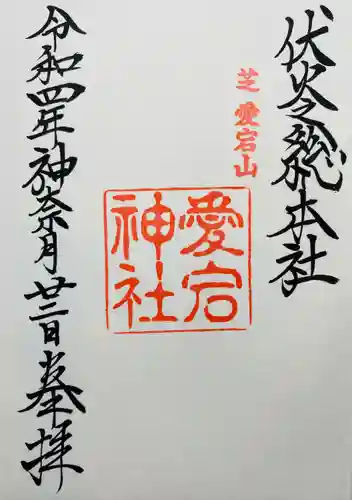 伏火之総本社
芝愛宕山
愛宕
神社
令和四年神奈月廿三日参拝